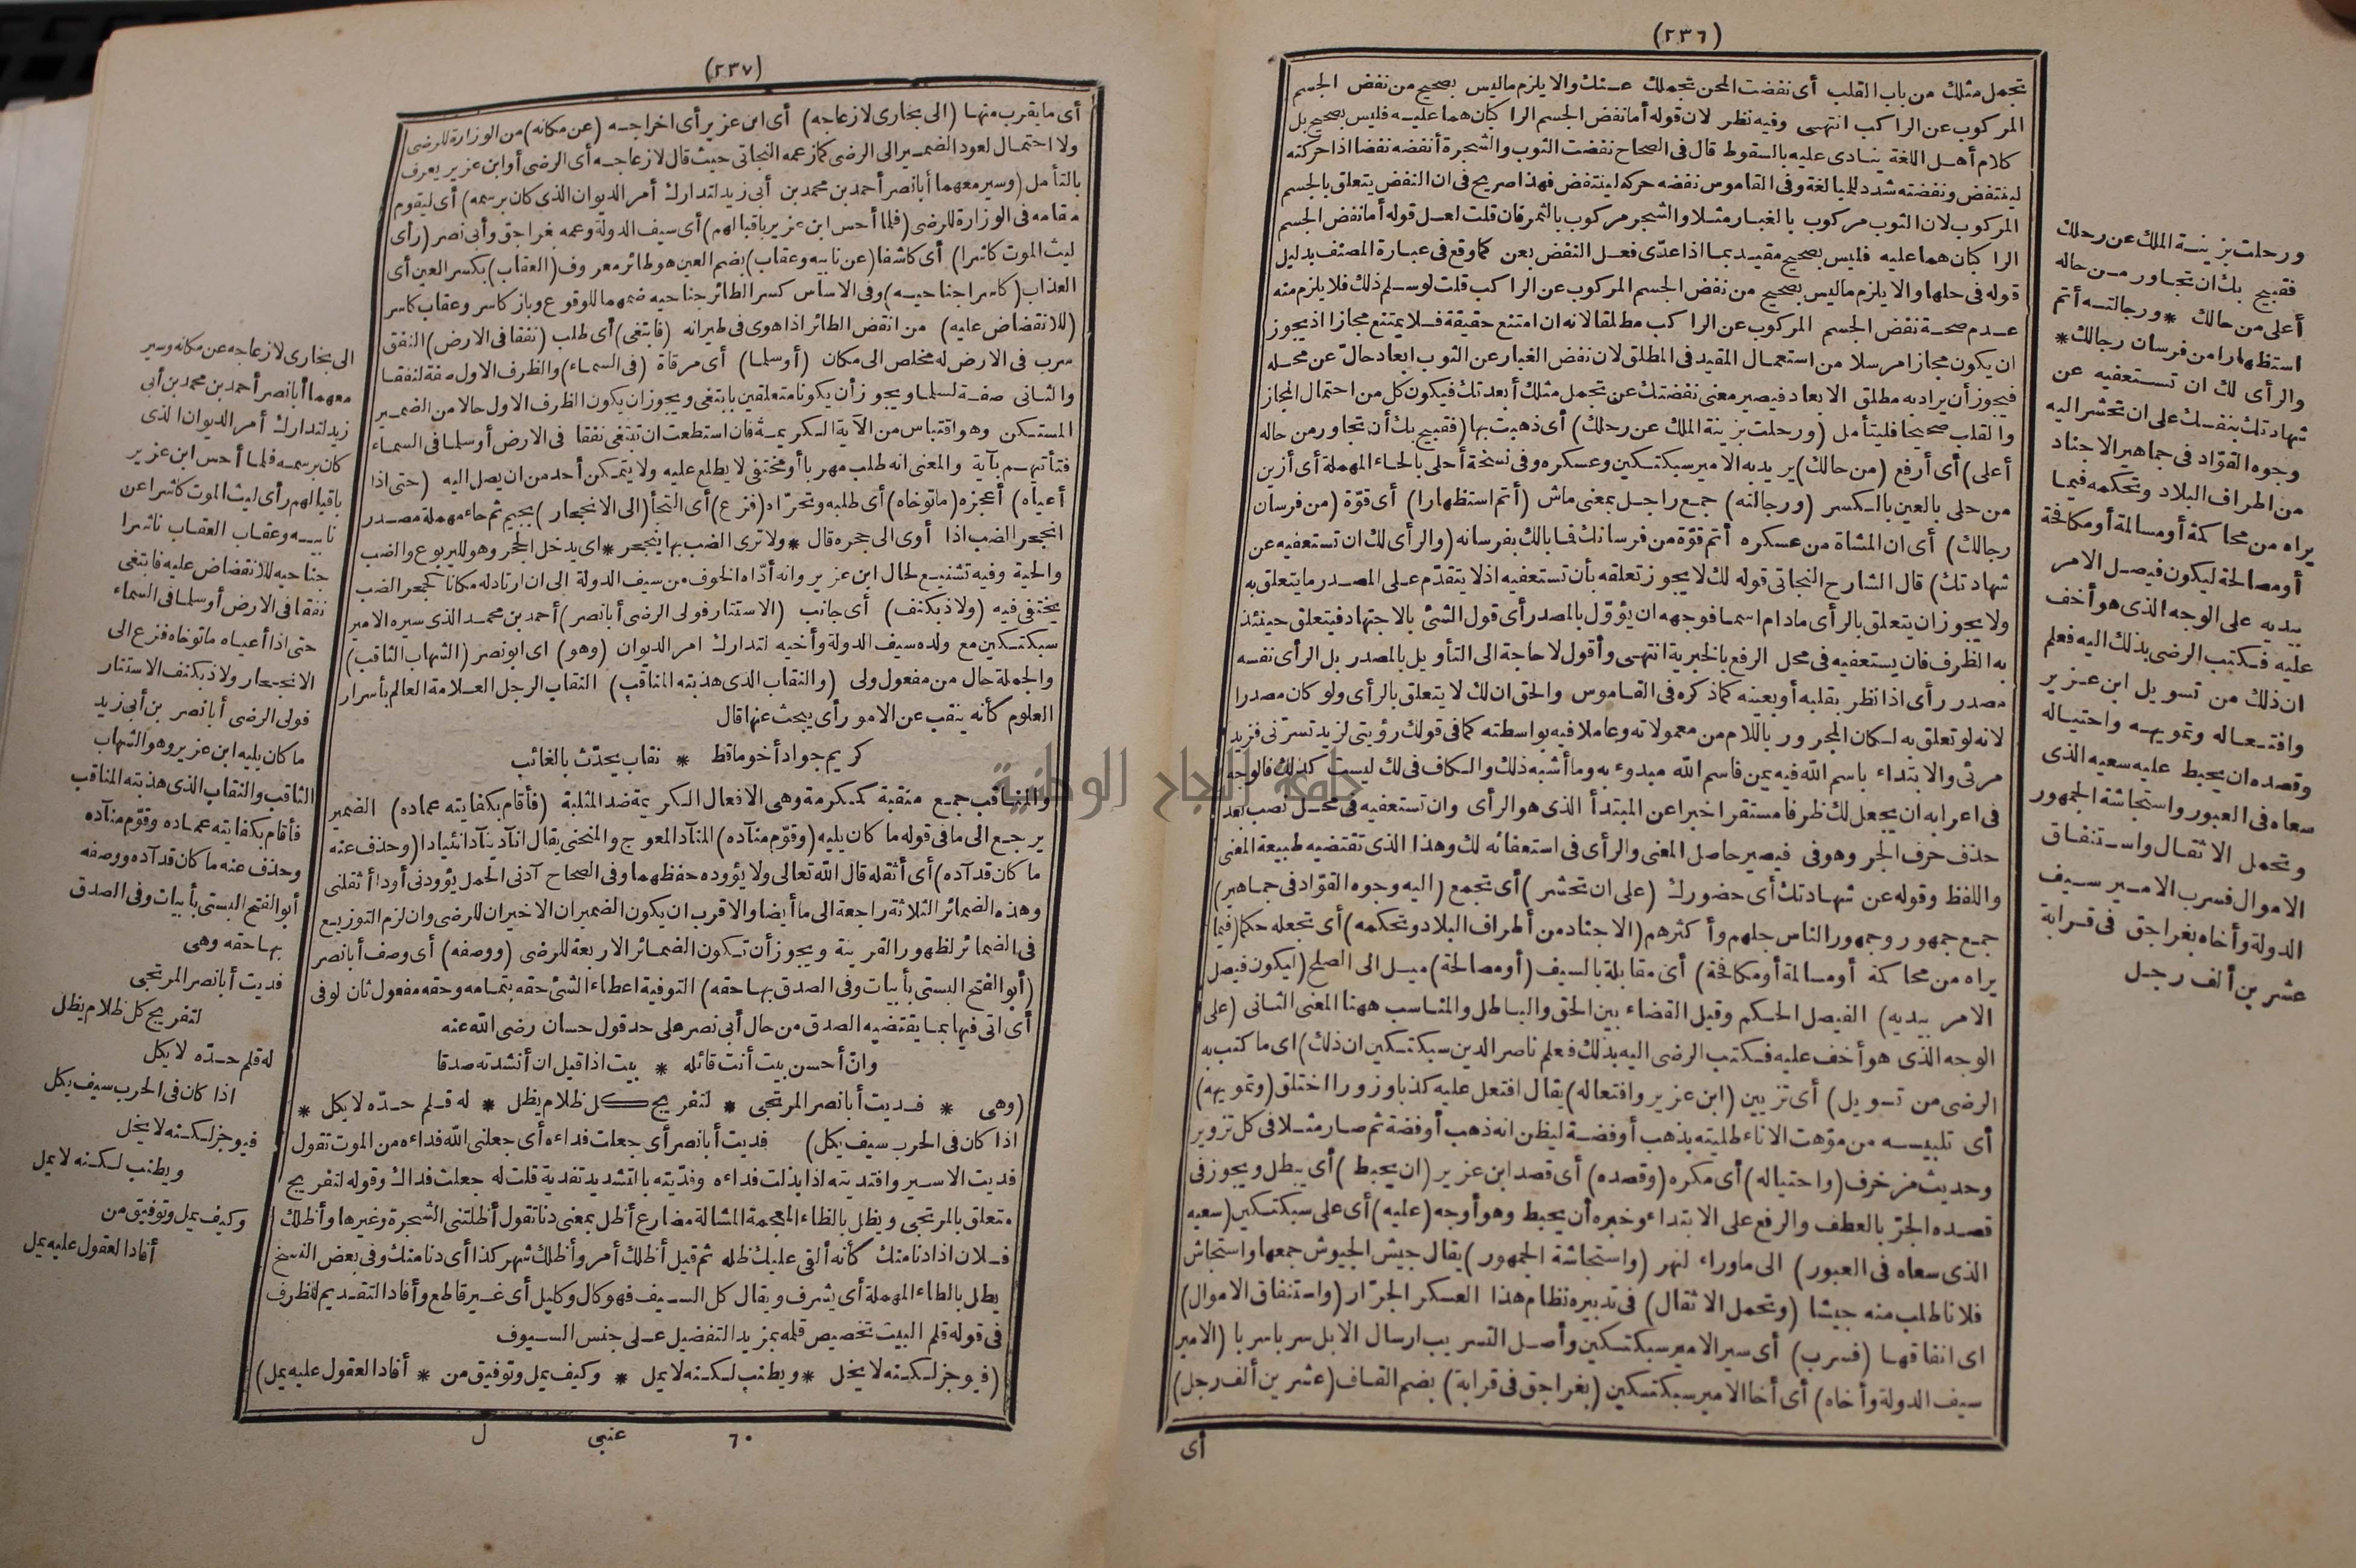 (٢٣٦)
تجمل مثلك من باب القلب أى نفضت المحن تجملك عنك والا يلزم ماليس بصحيح من نفض الجسم
المركوب عن الراكب انتهى وفيه نظر لان قوله أما نفض الجسم الراكبان هما عليه فليس بصحيح بل
كلام أهل اللغة ينادى عليه بالسقوط قال فى الصحاح نفضت الثوب والشجرة أنفضه نفضا اذا حركته
لينتفض ونفضته شدد للمبالغة وفى القاموس نفضه حركه لينتفض فهذا صريح فى ان النفض يتعلق بالجسم
المركوب لان الثوب مركوب بالغبار مثلا والشجر مركوب بالثمر فان قلت لعل قوله أما نفض الجسم
الراكبان هما عليه فليس بصحيح مقيد بما اذا عدّى فعل النفض بعن كما وقع فى عبارة المصنف بدليل
قوله فى حلها والا يلزم ماليس بصحيح من نفض الجسم المركوب عن الراكب قلت لو سلم ذلك فلا يلزم منه
عدم صحة نفض الجسم المركوب عن الراكب مطلقا لانه ان امتنع حقيقة فلا يمتنع مجازا اذ يجوز
ان يكون مجازا مرسلا من استعمال المقيد فى المطلق لان نفض الغبار عن الثوب ابعاد حالّ عن محله
فيجوز أن يراد به مطلق الابعاد فيصير معنى نفضتك عن تجمل مثلك أبعدتك فيكون كل من احتمال المجاز
والقلب صحيحا فليتأمل (ورحلت بزينة الملك عن رحلك) أى ذهبت بها (فقبيح بك أن تجاور من حاله
أعلى) أى أرفع (من حالك) يريد به الامير سبكتكين وعسكره وفى نسخة أحلى بالحاء المهملة أى أزين
من حلى بالعين بالكسر (ورجالته) جمع راجل بمعنى ماش (أتم استظهارا) أى قوّة (من فرسان
رجالك) أى ان المشاة من عسكره أتم قوّة من فرسانك فما بالك بفرسانه (والرأى لك ان تستعفيه عن
شهادتك) قال الشارح النجاتى قوله لك لا يجوز تعلقه بأن تستعفيه اذ لا يتقدّم على المصدر ما يتعلق به
ولا يجوز ان يتعلق بالرأى مادام اسما فوجهه ان يؤوّل بالمصدر أى قول الشئ بالاجتهاد فيتعلق حينئذ
به الظرف فان يستعفيه فى محل الرفع بالخبرية انتهى وأقول لا حاجة الى التأويل بالمصدر بل الرأى نفسه
مصدر رأى اذا نظر بقلبه أو بعينه كما ذكره فى القاموس والحق ان لك لا يتعلق بالرأى ولو كان مصدرا
لانه لو تعلق به لكان المجرور باللام من معمولاته وعاملا فيه بواسطته كما فى قولك رؤيتى لزيد تسرنى فزيد
مرئى والابتداء باسم الله فيه يمن فاسم الله مبدوء به وما أشبه ذلك والكاف فى لك ليست كذلك فالوجه
فى اعرابه ان يجعل لك ظرفا مستقرا خبرا عن المبتدأ الذى هو الرأى وان تستعفيه فى محل نصب بعد
حذف حرف الجر وهو فى فيصير حاصل المعنى والرأى فى استعفائه لك وهذا الذى تقتضيه طبيعة المعنى
واللفظ وقوله عن شهادتك أى حضورك (على ان تحشر) أى تجمع (اليه وجوه القوّاد فى جماهير)
جمع جمهور وجمهور الناس جلهم وأكثرهم (الاجناد من أطراف البلاد وتحكمه) أى تجعله حكما (فيما
يراه من محاكمة أو مسالمة أو مكافحة) أى مقابلة بالسيف (أو مصالحة) ميل الى الصلح (ليكون فيصل
الامر بيديه) الفيصل الحكم وقيل القضاء بين الحق والباطل والمناسب ههنا المعنى الثانى (على
الوجه الذى هو أخف عليه فكتب الرضى اليه بذلك فعلم ناصر الدين سبكتكين ان ذلك) اى ما كتب به
الرضى من تسويل) أى تزيين (ابن عزير وافتعاله) يقال افتعل عليه كذبا وزورا اختلق (وتمويهه)
أى تلبيسه من موّهت الاناء طليته بذهب أو فضة ليظن انه ذهب أو فضة ثم صار مثلا فى كل تزوير
وحديث مزخرف (واحتياله) أى مكره (وقصده) أى قصد ابن عزير (ان يحبط) أى يبطل ويجوز فى
قصده الجرّ بالعطف والرفع على الابتداء وخبره أن يحبط وهو أوجه (عليه) أى على سبكتكين (سعيه
الذى سعاه فى العبور) الى ماوراء لنهر (واستجاشة الجمهور) يقال جيش الجيوش جمعها واستجاش
فلانا طلب منه جيشا (وتحمل الاثقال) فى تدبيره نظام هذا العسكر الجرّار (واستنفاق الاموال)
اى انفاقها (فسرب) أى سير الامير سبكتكين وأصل التسريب ارسال الابل سربا سربا (الامير
سيف الدولة وأخاه) أى أخا الامير سبكتكين (بغراجق فى قرابة) بضم القاف (عشرين ألف رجل)
أى
ورحلت بزينة الملك عن رحلك
فقبيح بك ان تجاور من حاله
أعلى من حالك * ورجالته أتم
استظهارا من فرسان رجالك *
والرأى لك ان تستعفيه عن
شهادتك بنفسك على ان تحشر اليه
وجوه القوّاد فى جماهير الاجناد
من اطراف البلاد وتحكمه فيما
يراه من محاكمة أو مسالمة أو مكافحة
أو مصالحة ليكون فيصل الامر
بيديه على الوجه الذى هو أخف
عليه فكتب الرضى بذلك اليه فعلم
ان ذلك من تسويل ابن عزير
وافتعاله وتمويهه واحتياله
وقصده ان يحبط عليه سعيه الذى
سعاه فى العبور واستجاشة الجمهور
وتحمل الاثقال واستنفاق
الاموال فسرب الامير سيف
الدولة وأخاه بغراجق فى قرابة
عشرين ألف رجل
(٢٣٧)
أى ما يقرب منها (الى بخارى لازعاجه) أى ابن عزير أى اخراجه (عن مكانه) من الوزارة للرضى
ولا احتمال لعود الضمير الى الرضى كما زعمه النجاتى حيث قال لازعاجه أى الرضى أو ابن عزير يعرف
بالتأمل (وسير معهما أبا نصر أحمد بن محمد بن أبى زيد لتدارك أمر الديوان الذى كان برسمه) أى ليقوم
مقامه فى الوزارة للرضى (فلما أحس ابن عزير باقبالهم) أى سيف الدولة وعمه بغراجق وأبى نصر (رأى
ليث الموت كاشرا) أى كاشفا (عن نابيه وعقاب) بضم العين هو طائر معروف (العقاب) بكسر العين أى
العذاب (كاسرا جناحيه) وفى الاساس كسر الطائر جناحيه ضمهما للوقوع وباز كاسر وعقاب كاسر
(للانقضاض عليه) من انقض الطائر اذا هوى فى طيرانه (فابتغى) أى طلب (نفقا فى الارض) النفق
سرب فى الارض له مخلص الى مكان (أو سلما) أى مرقاة (فى السماء) والظرف الاول صفة لنفقا
والثانى صفة لسلما ويجوز أن يكونا متعلقين بابتغى ويجوز ان يكون الظرف الاول حالا من الضمير
المستكن وهو اقتباس من الآية الكريمة فان استطعت ان تبتغى نفقا فى الارض أو سلما فى السماء
فتأتيهم بآية والمعنى انه طلب مهربا أو مختفى لا يطلع عليه ولا يتمكن أحد من ان يصل اليه (حتى اذا
أعياه) أعجزه (ماتوخاه) أى طلبه وتحرّاه (فزع) أى التجأ (الى الانجحار) بجيم ثم حاء مهملة مصدر
انجحر الضب اذا أوى الى جحره قال * ولا ترى الضب بها ينجحر * اى يدخل الجحر وهو لليربوع والضب
والحية وفيه تشنيع لحال ابن عزير وانه أدّاه الخوف من سيف الدولة الى ان ارتاد له مكانا كجحر الضب
يختفى فيه (ولاذ بكنف) أى جانب (الاستتار فولى الرضى أبا نصر) أحمد بن محمد الذى سيره الامير
سبكتكين مع ولده سيف الدولة وأخيه لتدارك امر الديوان (وهو) اى ابو نصر (الشهاب الثاقب)
والجملة حال من مفعول ولى (والنقاب الذى هذبته المناقب) النقاب الرجل العلامة العالم بأسرار
العلوم كأنه ينقب عن الامور أى يبحث عنها قال
كريم جواد أخو ماقط * نقاب يحدّث بالغائب
والمناقب جمع منقبة كمكرمة وهى الافعال الكريمة ضد المثلبة (فأقام بكفايته عماده) الضمير
يرجع الى ما فى قوله ما كان يليه (وقوّم منآده) المنآد المعوج والمنحنى يقال انآد ينآد انئيادا (وحذف عنه
ما كان قد آده) أى أثقله قال الله تعالى ولا يؤوده حفظهما وفى الصحاح آدنى الحمل يؤودنى أودا أثقلنى
وهذه الضمائر الثلاثة راجعة الى ما أيضا والاقرب ان يكون الضميران الاخيران للرضى وان لزم التوزيع
فى الضمائر لظهور القرينة ويجوز أن تكون الضمائر الاربعة للرضى (ووصفه) أى وصف أبا نصر
(أبو الفتح البستى بأبيات وفى الصدق بها حقه) التوفية اعطاء الشئ حقه بتمامه وحقه مفعول ثان لوفى
أى اتى فيها بما يقتضيه الصدق من حال أبى نصر على حد قول حسان رضى الله عنه
وانّ أحسن بيت أنت قائله * بيت اذا قيل ان أنشدته صدقا
(وهى * فديت أبا نصر المرتجى * لتفريج كل ظلام يظل * له قلم حدّه لا يكل *
اذا كان فى الحرب سيف يكل) فديت أبا نصر أى جعلت فداءه أى جعلنى الله فداءه من الموت تقول
فديت الاسير وافتديته اذا بذلت فداءه وفدّيته بالتشديد تفدية قلت له جعلت فداك وقوله لتفريج
متعلق بالمرتجى ويظل بالظاء المعجمة المشالة مضارع أظل بمعنى دنا تقول أظلتنى الشجرة وغيرها وأظلك
فلان اذا دنا منك كأنه ألقى عليك ظله ثم قيل أظلك أمر وأظلك شهر كذا أى دنا منك وفى بعض النسخ
يطل بالطاء المهملة أى يشرف ويقال كل السيف فهو كال وكليل أى غير قاطع وأفاد التقديم للظرف
فى قوله قلم البيت تخصيص قلمه بمزيد التفضيل على جنس السيوف
(فيوجز لكنه لا يخل * ويطنب لكنه لا يمل * وكيف يمل وتوفيق من * أفاد العقول عليه يمل)
٦٠ عتبى ل
الى بخارى لازعاجه عن مكانه وسير
معهما أبا نصر أحمد بن محمد بن أبى
زيد لتدارك أمر الديوان الذى
كان برسمه فلما أحس ابن عزير
باقبالهم رأى ليث الموت كاشرا عن
نابيه وعقاب العقاب ناشرا
جناحيه للانقضاض عليه فابتغى
نفقا فى الارض أو سلما فى السماء
حتى اذا أعياه ماتوخاه فزع الى
الانجحار ولاذ بكنف الاستتار
فولى الرضى أبا نصر بن أبى زيد
ما كان يليه ابن عزير وهو الشهاب
الثاقب والنقاب الذى هذبته المناقب
فأقام بكفايته عماده وقوّم منآده
وحذف عنه ما كان قد آده ووصفه
أبو الفتح البستى بأبيات وفى الصدق
بها حقه وهى
فديت أبا نصر المرتجى
لتفريج كل ظلام يظل
له قلم حدّه لا يكل
اذا كان فى الحرب سيف يكل
فيوجز لكنه لا يخل
ويطنب لكنه لا يمل
وكيف يمل وتوفيق من
أفاد العقول عليه يمل
جامعة النجاح الوطنية